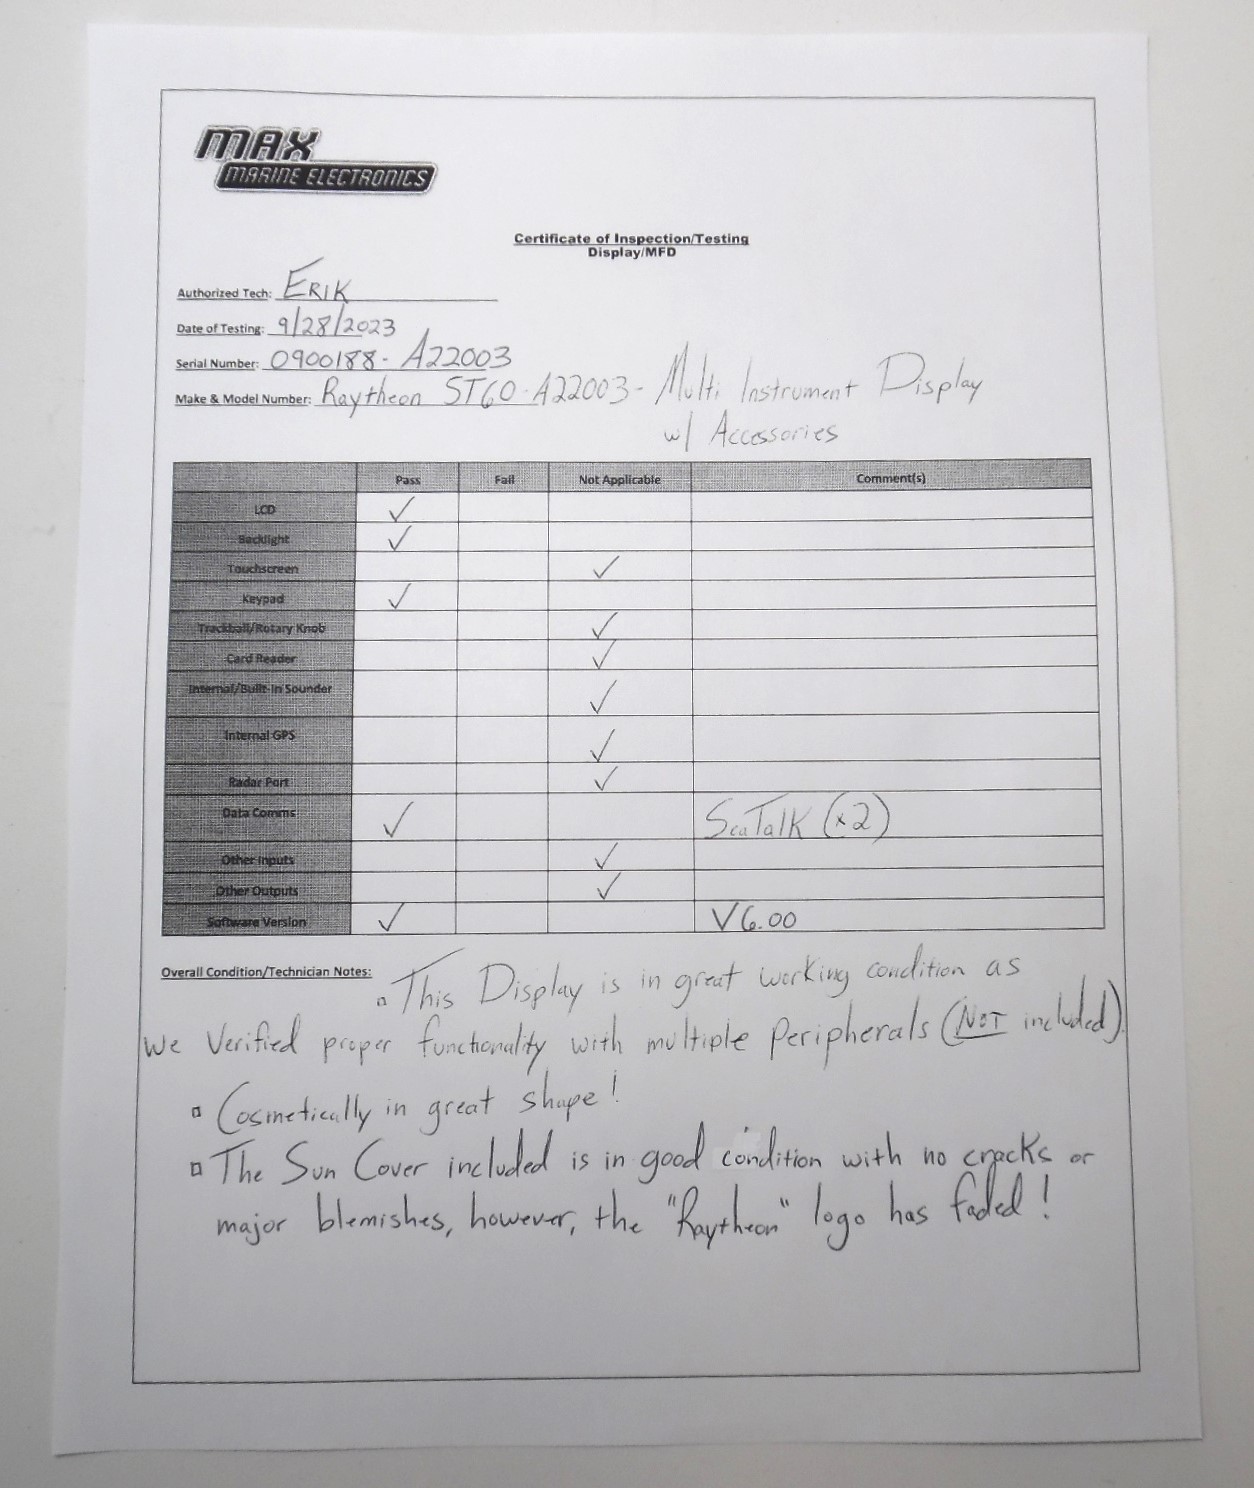 MAX
MARINE ELECTRONICS
Certificate of Inspection/Testing
Display/MFD
Authorized Tech: ERIK
Date of Testing: 9/28/2023
Serial Number: 0900188- A22003
Make & Model Number: Raytheon ST60-A22003- Multi Instrument Display
w/ Accessories
Pass Fail Not Applicable Comment(s)
LCD ✓
Backlight ✓
Touchscreen ✓
Keypad ✓
Trackball/Rotary Knob ✓
Card Reader ✓
Internal/Built-In Sounder ✓
Internal GPS ✓
Radar Port ✓
Data Comms ✓ SeaTalk (x2)
Other Inputs ✓
Other Outputs ✓
Software Version ✓ V6.00
Overall Condition/Technician Notes:
▫ This Display is in great working condition as
we Verified proper functionality with multiple Peripherals (NOT included).
▫ Cosmetically in great shape!
▫ The Sun Cover included is in good condition with no cracks or
major blemishes, however, the "Raytheon" logo has faded!